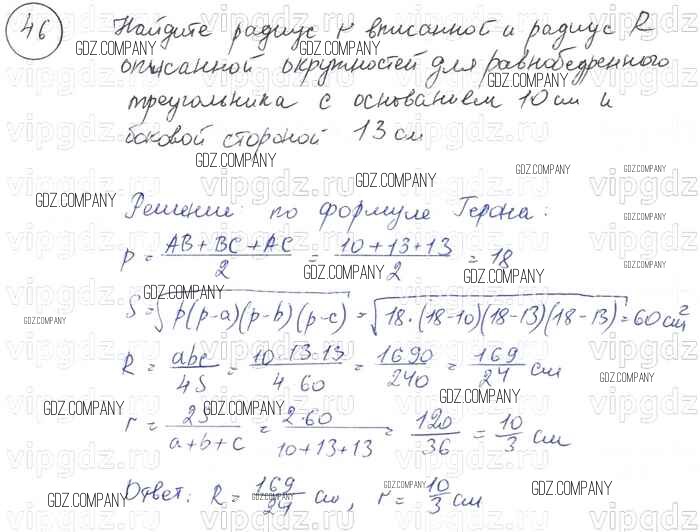 46 Найдите радиус r вписанной и радиус R
описанной окружностей для равнобедренного
треугольника с основанием 10 см и
боковой стороной 13 см
Решение: по формуле Герона:
p = (AB + BC + AC)/2 = (10 + 13 + 13)/2 = 18
S = √(p(p-a)(p-b)(p-c)) = √(18·(18-10)(18-13)(18-13)) = 60 см²
R = abc/4S = (10·13·13)/(4·60) = 1690/240 = 169/24 см
r = 2S/(a+b+c) = (2·60)/(10+13+13) = 120/36 = 10/3 см
Ответ: R = 169/24 см, r = 10/3 см
GDZ.COMPANY
vipgdz.ru